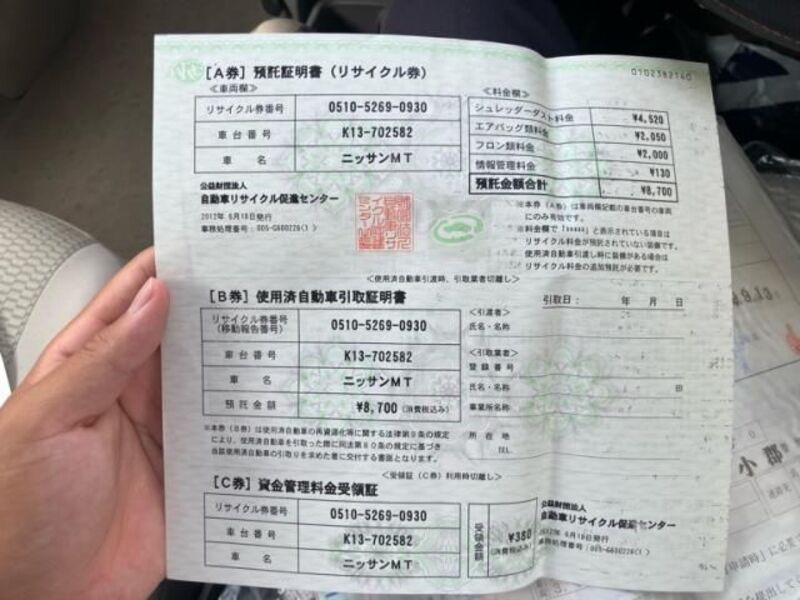 0702382160
[A券] 預託証明書（リサイクル券）
≪車両欄≫
リサイクル券番号 0510-5269-0930
車台番号 K13-702582
車名 ニッサンMT
≪料金欄≫
シュレッダーダスト料金 ¥4,520
エアバッグ類料金 ¥2,050
フロン類料金 ¥2,000
情報管理料金 ¥130
預託金額合計 ¥8,700
公益財団法人
自動車リサイクル促進センター
2012年 6月18日発行
事務処理番号：005-G600226(1)
※本券（A券）は車両欄記載の車台番号の車両
にのみ有効です。
※料金欄で「*****」と表示されている場合は
リサイクル料金が預託されていない装備です。
使用済自動車引渡し時に装備がある場合は
リサイクル料金の追加預託が必要です。
＜使用済自動車引渡時、引取業者切離し＞
[B券] 使用済自動車引取証明書
引取日： 年 月 日
リサイクル券番号
(移動報告番号) 0510-5269-0930
車台番号 K13-702582
車名 ニッサンMT
預託金額 ¥8,700 (消費税込み)
＜引渡者＞
氏名・名称
＜引取業者＞
登録番号
氏名・名称 印
事業所名称
所在地
TEL
※本券（B券）は使用済自動車の再資源化等に関する法律第9条の規定
により、使用済自動車を引取った際に同法第80条の規定に基づき
当該使用済自動車の引取りを求めた者に交付する書面となります。
＜受領証（C券）利用時切離し＞
[C券] 資金管理料金受領証
リサイクル券番号 0510-5269-0930
車台番号 K13-702582
車名 ニッサンMT
受領金額 ¥380
(消費税込み)
公益財団法人
自動車リサイクル促進センター
2012年 6月18日発行
事務処理番号：005-G600226(1)
9.9.13
小郡